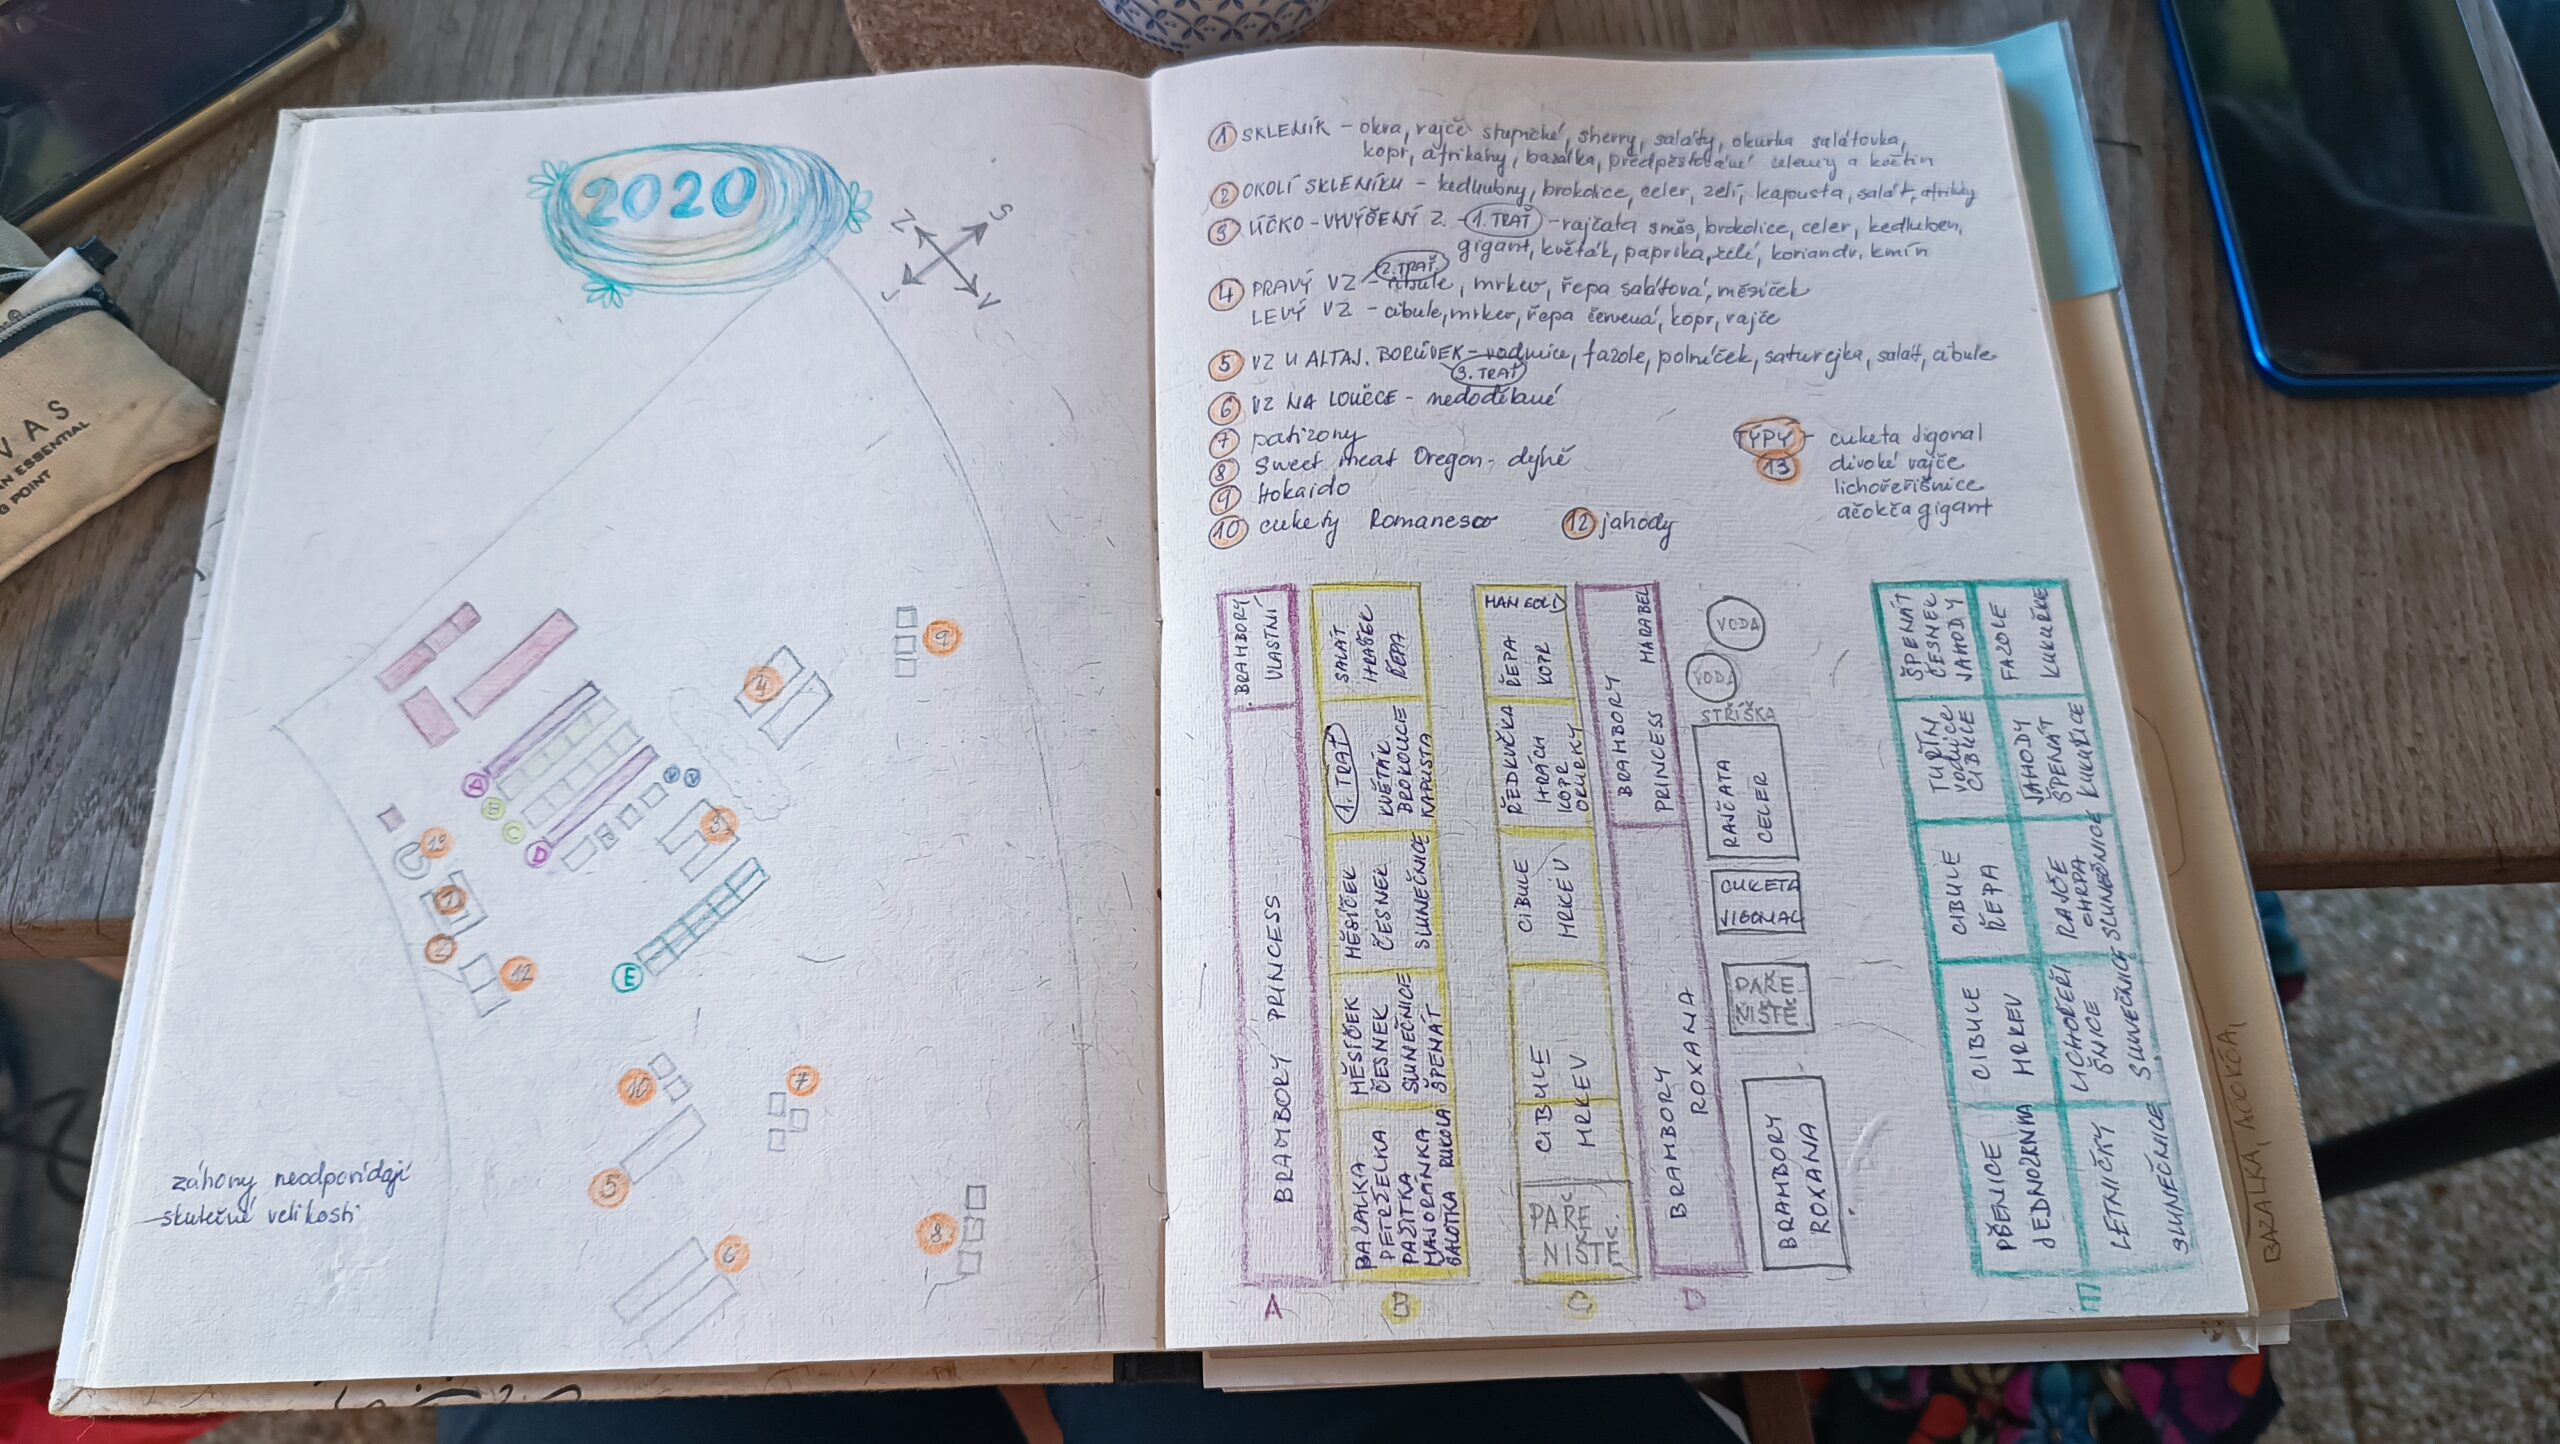 2020
Z
S
J
V
4
9
A
B
C
D
V
V
3
13
1
2
12
E
10
7
5
8
6
záhony neodpovídají
skutečné velikosti
VAS
AN ESSENTIAL
G POINT
1 SKLENÍK - okra, rajče stupické, sherry, saláty, okurka salátovka,
kopr, afrikány, bazalka, předpěstování zeleniny a květin
2 OKOLÍ SKLENÍKU - kedlubny, brokolice, celer, zelí, kapusta, salát, afrikány
3 ÚČKO - VYVÝŠENÝ Z. - 1. TRAŤ - rajčata směs, brokolice, celer, kedluben,
gigant, květák, paprika, zelí, koriandr, kmín
2. TRAŤ
4 PRAVÝ VZ - cibule, mrkev, řepa salátová, měsíček
LEVÝ VZ - cibule, mrkev, řepa červená, kopr, rajče
5 VZ U ALTAJ. BORŮVEK - vodnice, fazole, polníček, saturejka, salát, cibule
3. TRAŤ
6 VZ NA LOUČCE - nedodělané
7 patizony
8 Sweet meat Oregon - dýně
9 Hokaido
10 cukety Romanesco
12 jahody
TÝPÝ - cuketa
13 divoké rajče
lichořeřišnice
ačokča gigant
BRAMBORY
VLASTNÍ
BRAMBORY PRINCESS
A
SALÁT
HRÁŠEK
ŘEPA
1. TRAŤ
KVĚTÁK
BROKOLICE
KAPUSTA
MĚSÍČEK
ČESNEK
SLUNEČNICE
MĚSÍČEK
ČESNEK
SLUNEČNICE
ŠPENÁT
BAZALKA
PETRŽELKA
PAŽITKA
MAJORÁNKA
RUKOLA
B
MANGOLD
ŘEPA
KOPR
ŘEDKVIČKA
HRÁCH
KOPR
OKURKY
CIBULE
MRKEV
CIBULE
MRKEV
PAŘE
NIŠTĚ
C
BRAMBORY
PRINCESS
MARABEL
BRAMBORY
ROXANA
D
VODA
VODA
STŘÍŠKA
RAJČATA
CELER
CUKETA
PAŘE
NIŠTĚ
BRAMBORY
ROXANA
ŠPENÁT
ČESNEK
JAHODY
FAZOLE
KUKUŘICE
TUŘÍN
VODNICE
CIBULE
JAHODY
ŠPENÁT
KUKUŘICE
CIBULE
ŘEPA
RAJČE
CHRPA
SLUNEČNICE
CIBULE
MRKEV
LICHOŘEŘI
ŠNICE
SLUNEČNICE
PŠENICE
JEDNOZRNKA
LETNIČKY
SLUNEČNICE
E
BAZALKA, AČOKČA,